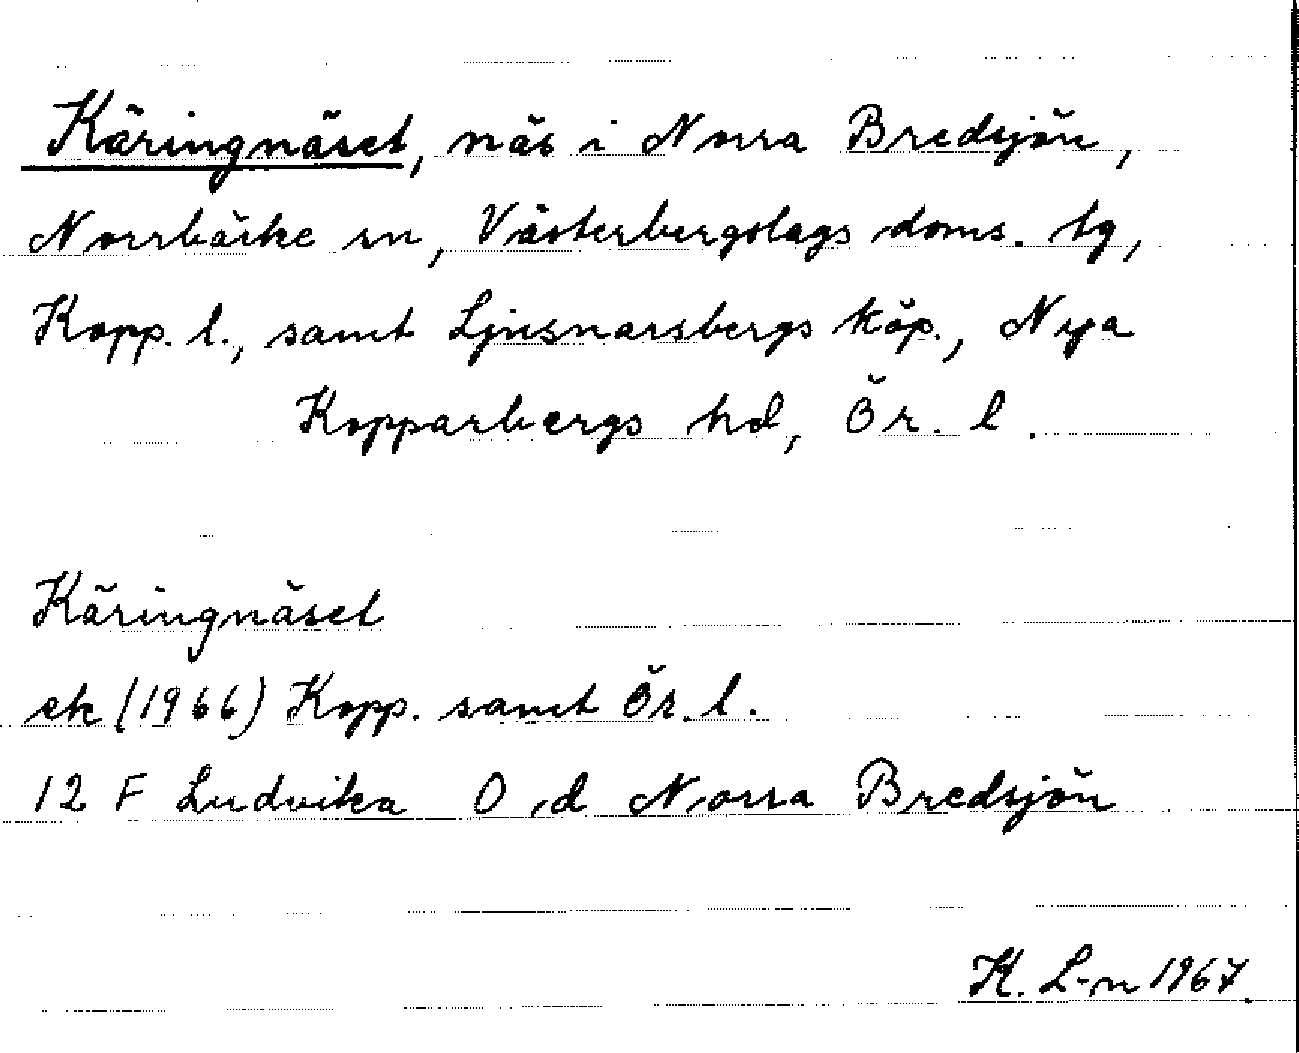 Käringnäset, näs i Norra Bredsjön,
Norrbärke sn, Västerbergslags doms. tg,
Kopp. l., samt Ljusnarsbergs köp., Nya
Kopparbergs hd, Ör. l.
Käringnäset
ek (1966) Kopp. samt Ör. l.
12 F Ludvika O d Norra Bredsjön
K. L-n 1967.